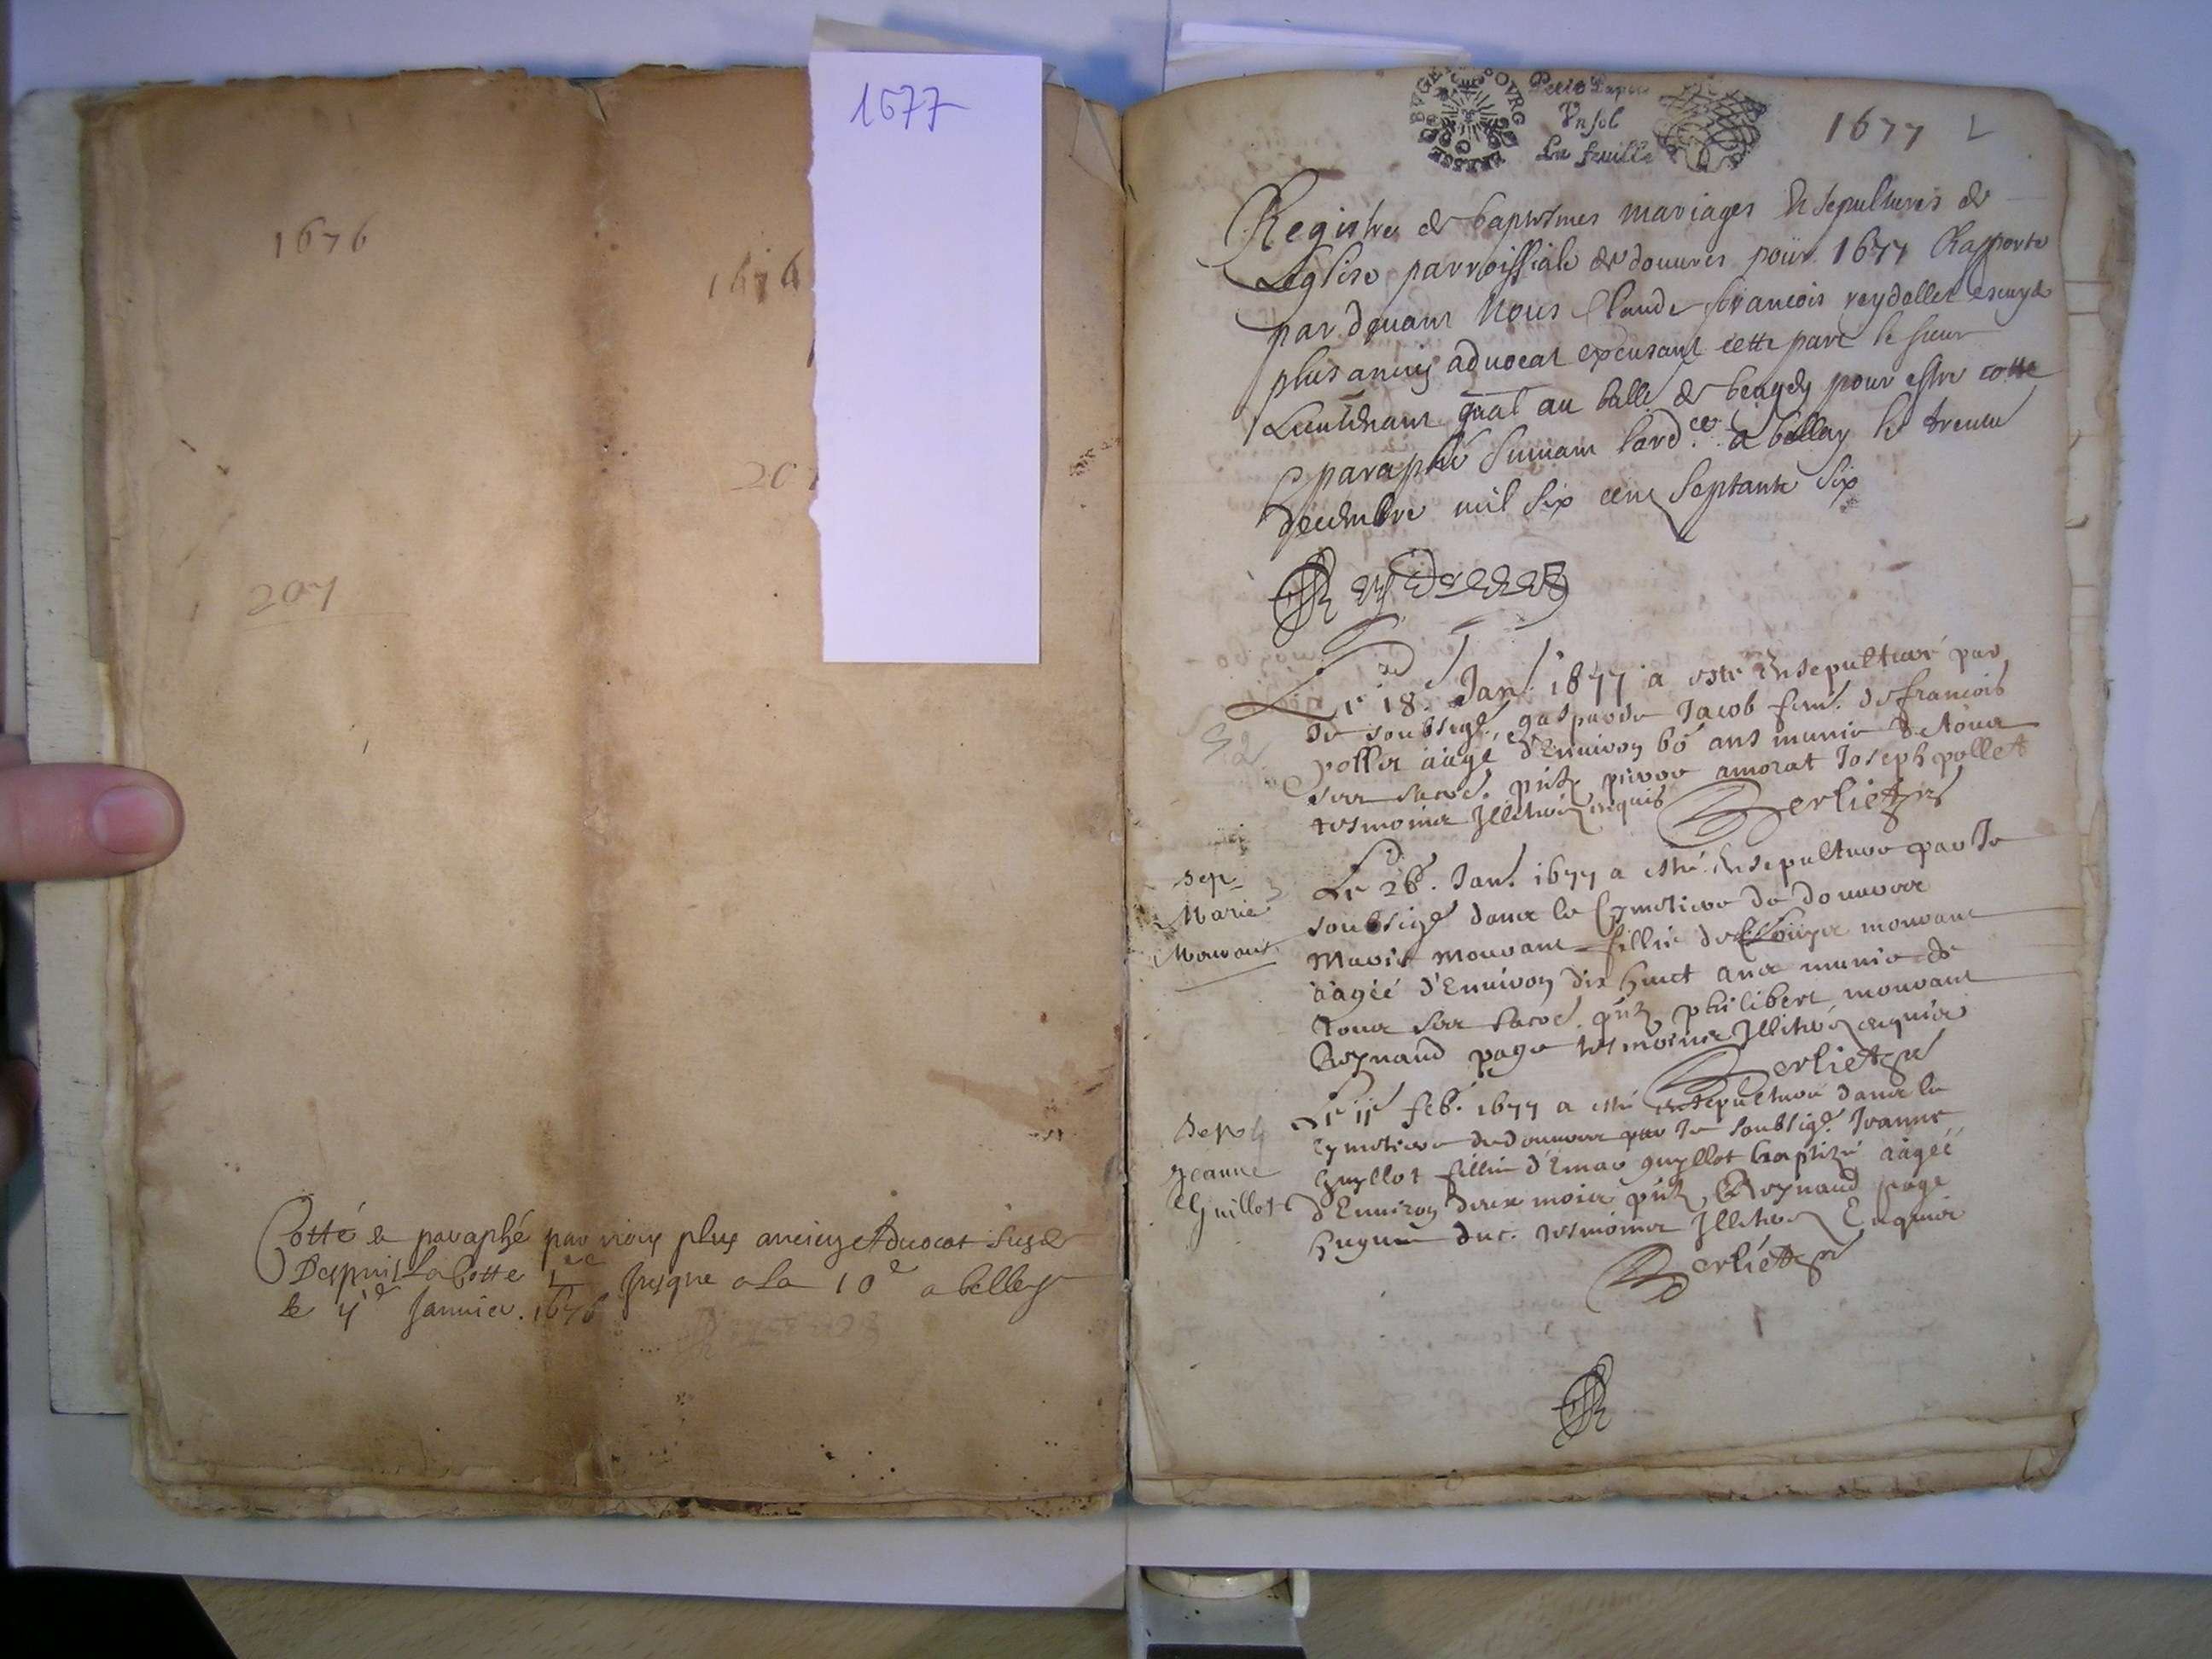 1676
1676
207
207
Cotté et paraphé par nous plus ancien Advocat susd
Despuis la Cotte 1ere jusque a la 10e a belley
le 4e Janvier. 1676
1677
BUGEY
Petit Papier
Un sol
La feuille
1677
Registre de baptesmes mariages et sepultures de
Leglise parroissiale de douvres pour 1677 Rapporté
par devant Nous Claude francois reydellet escuyer
plus ancien advocat excusant cette part le sieur
Lieutenant gnal au balle de beugey pour estre cotté
& paraphé suivant lordce a belley le trente
decembre mil six cent septante six
Reydellet
Le 18e Jan. 1677 a esté ensepulturé par
Je soubsigé, gasparde Jacob fem. de francois
pollet aagé d'Environ 60 ans munie de tous
ses sacr. pnts pierre amorat Joseph pollet
tesmoins Illiterez enquis Berliet
sep
Marie
Morvant
Le 26. Jan. 1677 a esté ensepulturé par Je
soubsigé dans le Cymetiere de douvres
Marie morvant fillie de morvant
aagéé d'Environ dix huict ans munie de
tous ses sacr. pnts philibert morvant
Reynaud page tesmoins Illiterez enquis
Berliet
Sep
Jeanne
Guillot
Le 11e feb. 1677 a esté ensepulturé dans le
Cymetiere de douvres par Je soubsigé Jeanne
guyllot fillie d'Emar guyllot baptizé aagéé
d'Environ deux mois pnts, Reynaud page
hugues duc. tesmoins Illiterez Enquis
Berliet